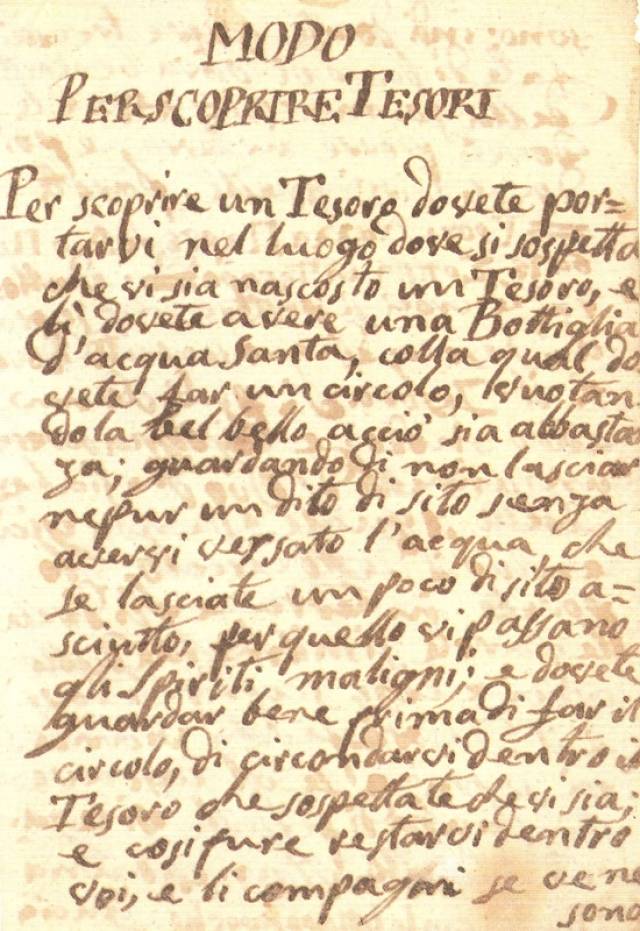 MODO
PER SCOPRIRE TESORI
Per scoprire un Tesoro dovete por=
tarvi nel luogo dove si sospetta
che vi sia nascosto un Tesoro, e
lì dovete avere una Bottiglia
d'acqua Santa, colla qual do
vete far un circolo, vuotan
dola bel bello acciò sia abbasta
za; guardando di non lasciar
nepur un dito di sito senza
avervi versato l'acqua, che
se lasciate un poco di sito a=
sciuto, per quello vi passano
gli Spiriti maligni; e dovete
guardar bene prima di far il
circolo, di circondarvi dentro il
Tesoro che sospettate che vi sia,
e cosi pure restarvi dentro
voi, e li compagni se ve ne
sono